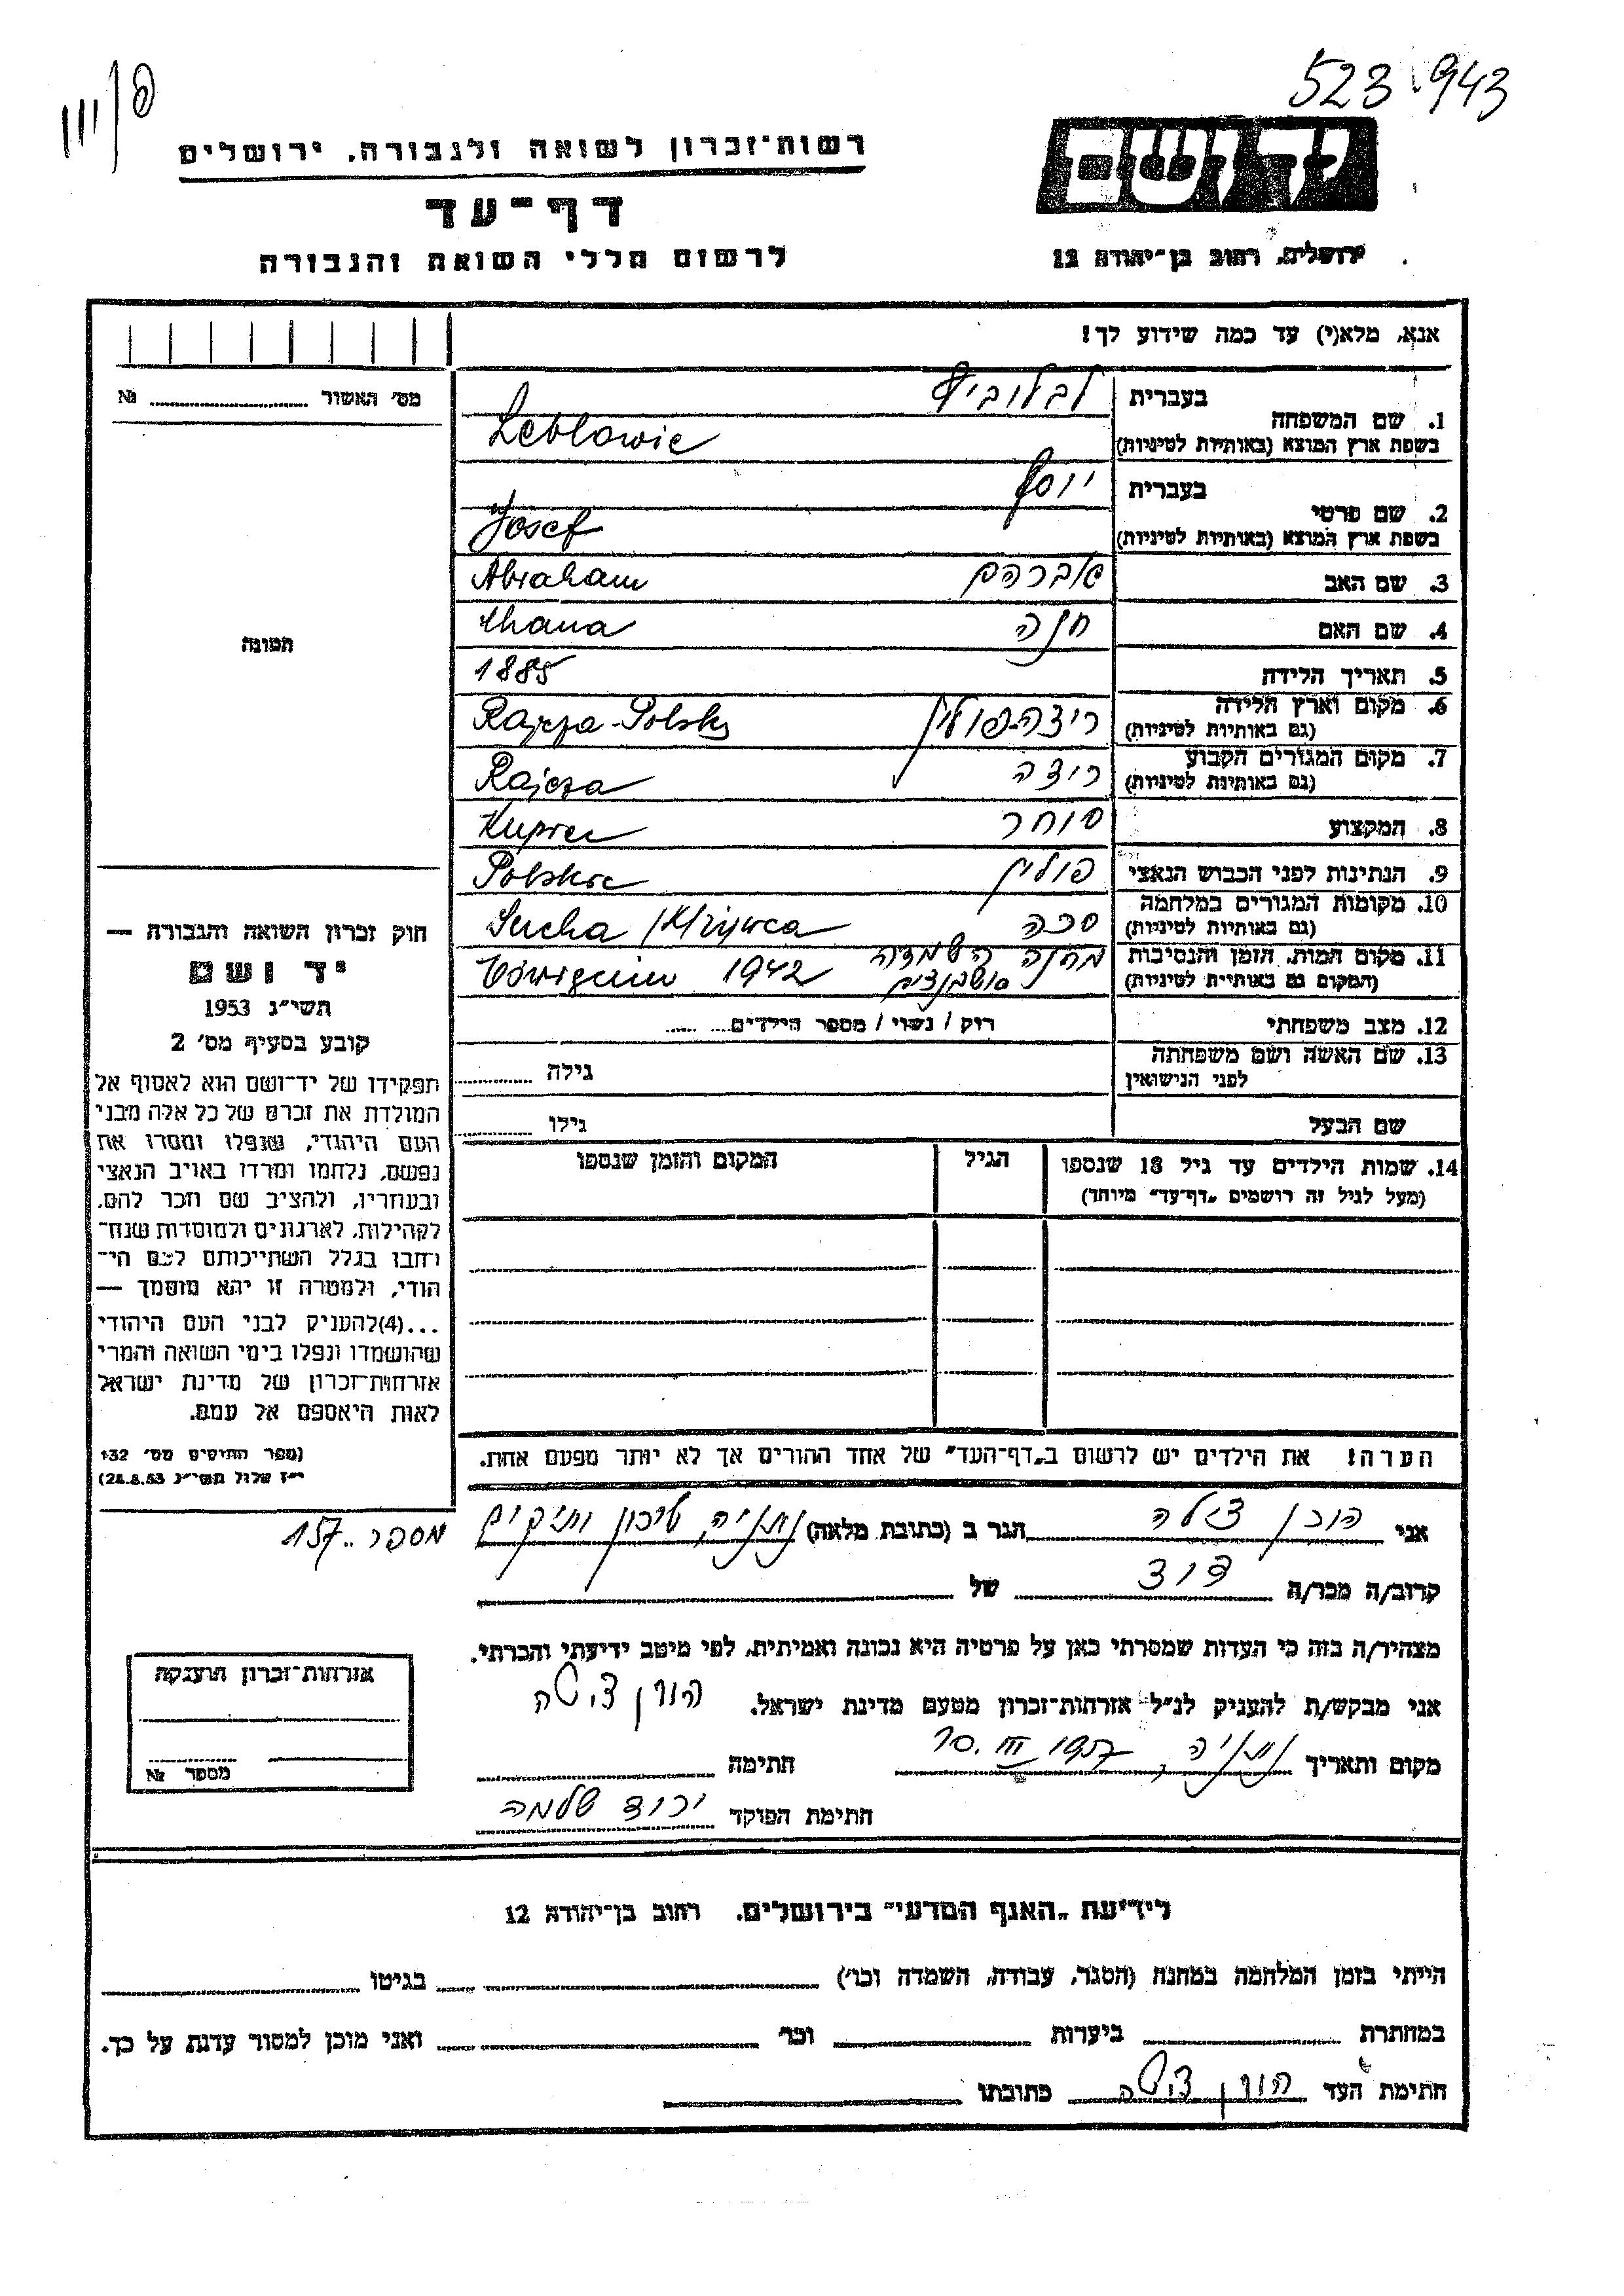 523.943
יד ושם
ירושלים, רחוב בן־יהודה 12
רשות־זכרון לשואה ולגבורה, ירושלים
דף־עד
לרשום חללי השואה והגבורה
אנא, מלא(י) עד כמה שידוע לך!
מס׳ האשור № 
1. שם המשפחה
בעברית לבלוביץ
בשפת ארץ המוצא (באותיות לטיניות) Leblowic
2. שם פרטי
בעברית יוסף
בשפת ארץ המוצא (באותיות לטיניות) Josef
3. שם האב אברהם Abraham
4. שם האם חנה Chana
5. תאריך הלידה 1885
6. מקום וארץ הלידה ריצה־פולין Rajcza-Polska
(גם באותיות לטיניות)
7. מקום המגורים הקבוע ריצה Rajcza
(גם באותיות לטיניות)
8. המקצוע סוחר Kupiec
9. הנתינות לפני הכבוש הנאצי פולין Polskie
10. מקומות המגורים במלחמה סכה Sucha
(גם באותיות לטיניות)
11. מקום המות, הזמן והנסיבות מחנה השמדה 1942
(המקום גם באותיות לטיניות)
12. מצב משפחתי רוק / נשוי / מספר הילדים
13. שם האשה ושם משפחתה
לפני הנישואין גילה
שם הבעל גילו
14. שמות הילדים עד גיל 18 שנספו הגיל המקום והזמן שנספו
(מעל לגיל זה רושמים „דף־עד״ מיוחד)
הערה! את הילדים יש לרשום ב„דף־העד״ של אחד ההורים אך לא יותר מפעם אחת.
תמונה
חוק זכרון השואה והגבורה —
יד ושם
תשי״ג 1953
קובע בסעיף מס׳ 2
תפקידו של יד־ושם הוא לאסוף אל
המולדת את זכרם של כל אלה מבני
העם היהודי, שנפלו ומסרו את
נפשם, נלחמו ומרדו באויב הנאצי
ובעוזריו, ולהציב שם וזכר להם,
לקהילות, לארגונים ולמוסדות שנח־
רבו בגלל השתייכותם לעם הי־
הודי, ולמטרה זו יהא מוסמך —
...(4)להעניק לבני העם היהודי
שהושמדו ונפלו בימי השואה והמרי
אזרחות־זכרון של מדינת ישראל
לאות היאספם אל עמם.
(ספר החוקים מס׳ 132
י״ז אלול תשי״ג 28.8.53)
מספר 157
אני הורן צילה הגר ב (כתובת מלאה) נתניה, שיכון ותיקים
קרוב/ה מכר/ה דוד של
מצהיר/ה בזה כי העדות שמסרתי כאן על פרטיה היא נכונה ואמיתית, לפי מיטב ידיעתי והכרתי.
אני מבקש/ת להעניק לנ״ל אזרחות־זכרון מטעם מדינת ישראל. הורן צילה
מקום ותאריך נתניה, 10.III 1957 חתימה
חתימת הפוקד שלמה
אזרחות־זכרון הוענקה
מספר №
לידיעת „האגף המדעי״ בירושלים. רחוב בן־יהודה 12
הייתי בזמן המלחמה במחנה (הסגר, עבודה, השמדה וכו׳) בגיטו
במחתרת ביערות וכו׳ ואני מוכן למסור עדות על כך.
חתימת העד הורן צילה כתובתו